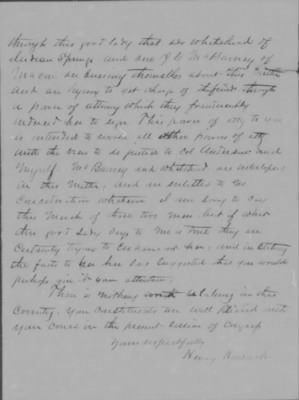 through this good lady that one Whitehead of
Indian Springs and one J C McBurney of
Macon are busying themselves about this matter
and are trying to get charge of the funds through
a power of attorney which they fraudulently
induced her to sign This power of atty to you
is intended to revoke all other powers of atty
with the view to do justice to Col Anderson and
Myself. McBurney and Whitehead are interlopers
in this Matter, and are entitled to no
Consideration whatever I am sorry to say
this Much of these two men but if what
this good Lady says to Me is true they are
Certainly trying to her, and in stating
the facts to her has suggested that you would
perhaps give it your attention
There is nothing in this
Country. your constituents are well pleased with
your course in the present session of Congress
Yours respectfully
Henry